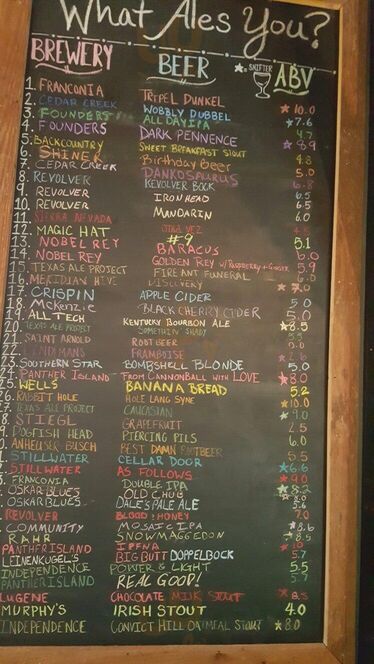 What Ales You?
BREWERY BEER * SNIFTER ABV
1. FRANCONIA TRIPEL DUNKEL * 10.0
2. CEDAR CREEK WOBBLY DUBBEL * 7.6
3. FOUNDERS ALL DAY IPA 4.7
4. FOUNDERS DARK PENNENCE * 8.9
5. BACKCOUNTRY SWEET BREAKFAST STOUT 4.8
6. SHINER Birthday Beer 5.0
7. CEDAR CREEK DANKOSAURUS 6.8
8. REVOLVER REVOLVER BOCK 6.5
9. REVOLVER IRON HEAD 6.5
10. REVOLVER MANDARIN 6.0
11. SIERRA NEVADA
12. MAGIC HAT #9 5.1
13. NOBEL REY BARACUS 6.0
14. NOBEL REY GOLDEN REY W/ RASPBERRY + GINGER 5.9
15. TEXAS ALE PROJECT FIRE ANT FUNERAL 6.0
16. MERIDIAN HIVE DISCOVERY * 7.0
17. CRISPIN APPLE CIDER 5.0
18. McKenzie BLACK CHERRY CIDER 5.0
19. ALLTECH KENTUCKY BOURBON ALE * 8.5
20. TEXAS ALE PROJECT SOMETHIN SHADY
21. SAINT ARNOLD ROOT BEER
FRAMBOISE * 2.6
SOUTHERN STAR BOMBSHELL BLONDE 5.0
PANTHER ISLAND FROM CANNONBALL WITH LOVE * 8.0
WELLS BANANA BREAD 5.2
RABBIT HOLE HOLE LANG SYNE * 10.0
TEXAS ALE PROJECT CAUCASIAN * 9.0
STIEGL GRAPEFRUIT 2.5
DOGFISH HEAD PIERCING PILS 6.0
ANHEUSER BUSCH BEST DAMN ROOTBEER 5.5
STILLWATER CELLAR DOOR * 6.6
STILLWATER AS FOLLOWS * 9.0
FRANCONIA DOUBLE IPA * 8.2
OSKAR BLUES OLD CHUB
OSKAR BLUES DALE'S PALE ALE
REVOLVER BLOOD + HONEY 7.0
COMMUNITY MOSAIC IPA * 8.6
RAHR SNOWMAGEDDON * 8.5
PANTHER ISLAND IPFNA
LEINENKUGEL'S BIG BUTT DOPPELBOCK 5.7
INDEPENDENCE POWER & LIGHT 5.5
PANTHER ISLAND REAL GOOD!
LUGENE CHOCOLATE MILK STOUT * 8.5
MURPHY'S IRISH STOUT 4.0
INDEPENDENCE CONVICT HILL OATMEAL STOUT * 8.0